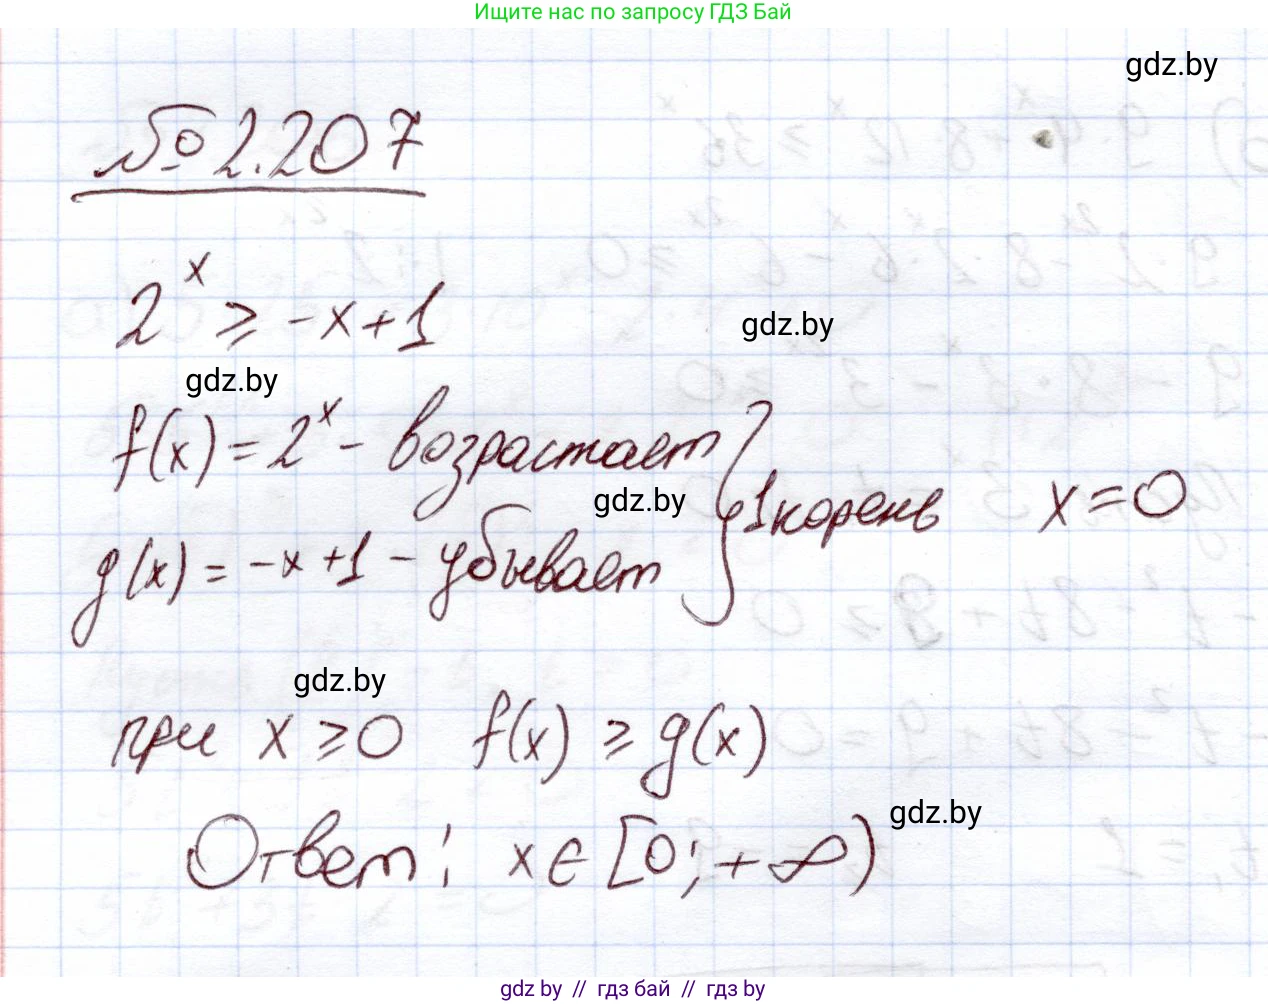 Ищите нас по запросу ГДЗ Бай
gdz.by
№ 2.207
2^x ⩾ -x+1
gdz.by
gdz.by
f(x) = 2^x - возрастает
gdz.by
g(x) = -x+1 - убывает
} 1 корень x=0
gdz.by
при x ⩾ 0 f(x) ⩾ g(x)
gdz.by
Ответ: x ∈ [0; +∞)
gdz by // гдз бай // гдз by